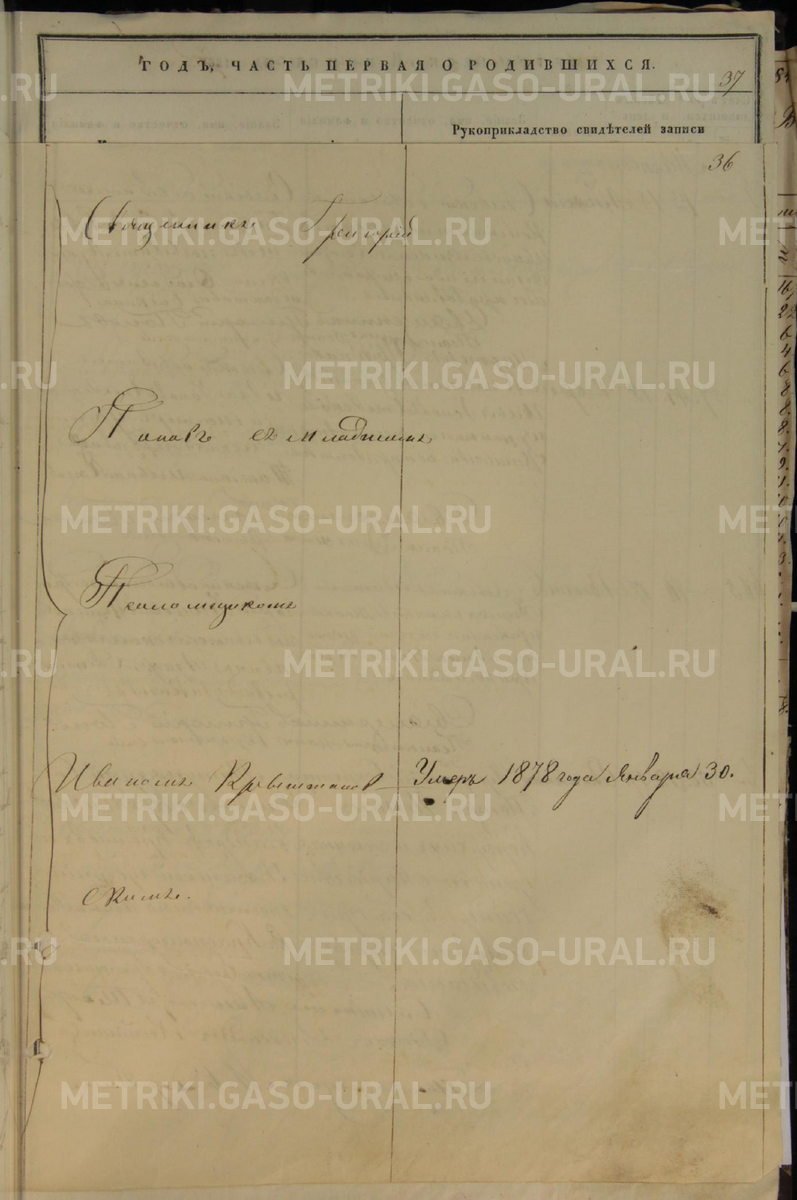 ГОДЪ, ЧАСТЬ ПЕРВАЯ О РОДИВШИХСЯ.
37
Рукоприкладство свидѣтелей записи
36
Священникъ Григорій
Поповъ съ младшимъ
Псаломщикомъ
Иваномъ Кръ
Умеръ 1878 года Января 30.
скимъ.
METRIKI.GASO-URAL.RU